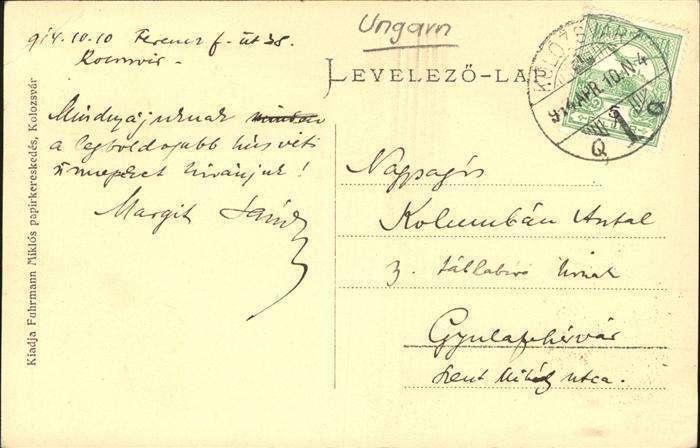 Ungarn
914.10.10 Ferenc J. út 38.
Kolozsvár
LEVELEZŐ-LAP
KOLOZSVÁR
914 APR. 10. N 4
1 a
Mindnyájuknak
a legboldogabb húsvéti
ünnepeket kívánjuk!
Margit Sándor
Nagyságos
Kolumbán Antal
táblabíró úrnak
Gyulafehérvár
Szent Mihály utca.
Kiadja Fuhrmann Miklós papirkereskedés, Kolozsvár